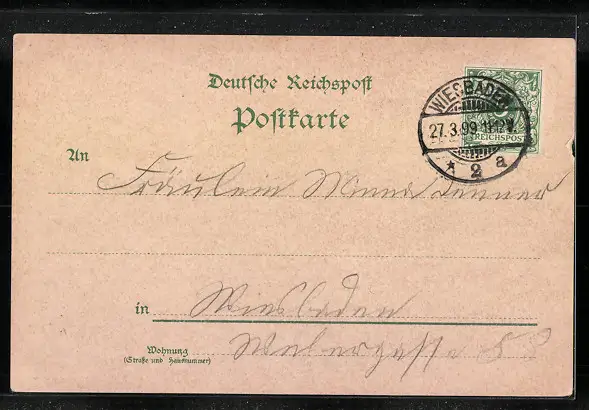 Deutsche Reichspost
Postkarte
WIESBADEN
27.3.99.
* 2 a
REICHSPOST
An Fräulein Minna
in Wiesbaden
Wohnung
(Straße und Hausnummer)
Webergasse